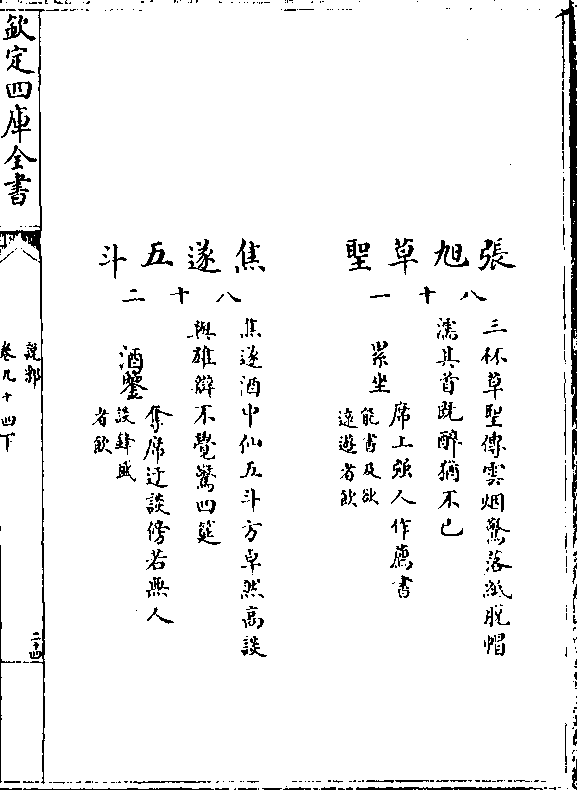 張旭草聖
八十一
三杯草聖傳雲烟驚落紙脫帽
濡其首既醉猶不已
崇坐
席上强人作薦書
能書及欲
遠遊者飲
焦遂五斗
八十二
焦遂酒中仙五斗方卓然高談
與雄辯不覺驚四筵
酒鑒
奪席迂談傍若無人
談鋒盛
者飲
欽定四庫全書
說郛
卷九十四下
二十四